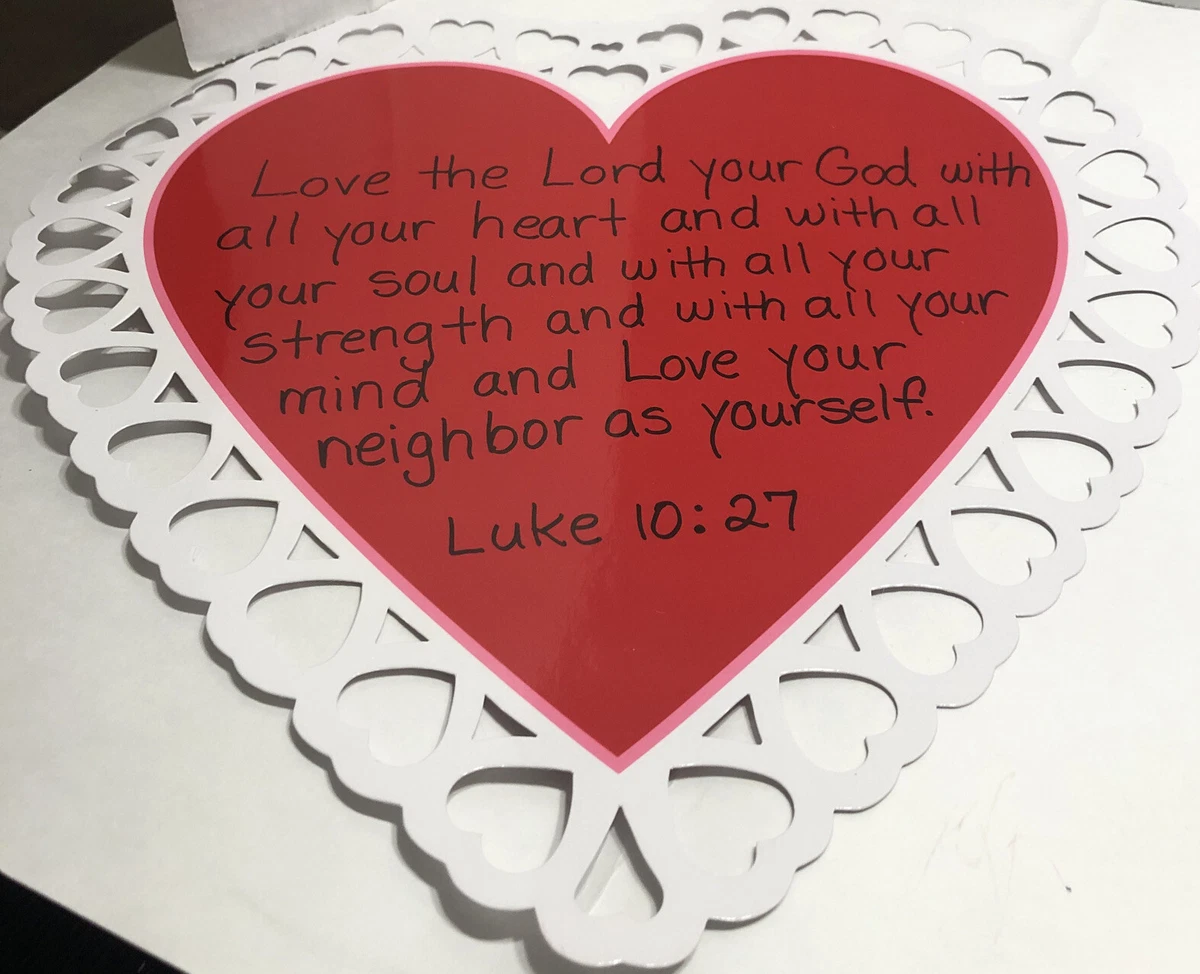 Love the Lord your God with
all your heart and with all
your soul and with all your
strength and with all your
mind and Love your
neighbor as yourself.
Luke 10:27